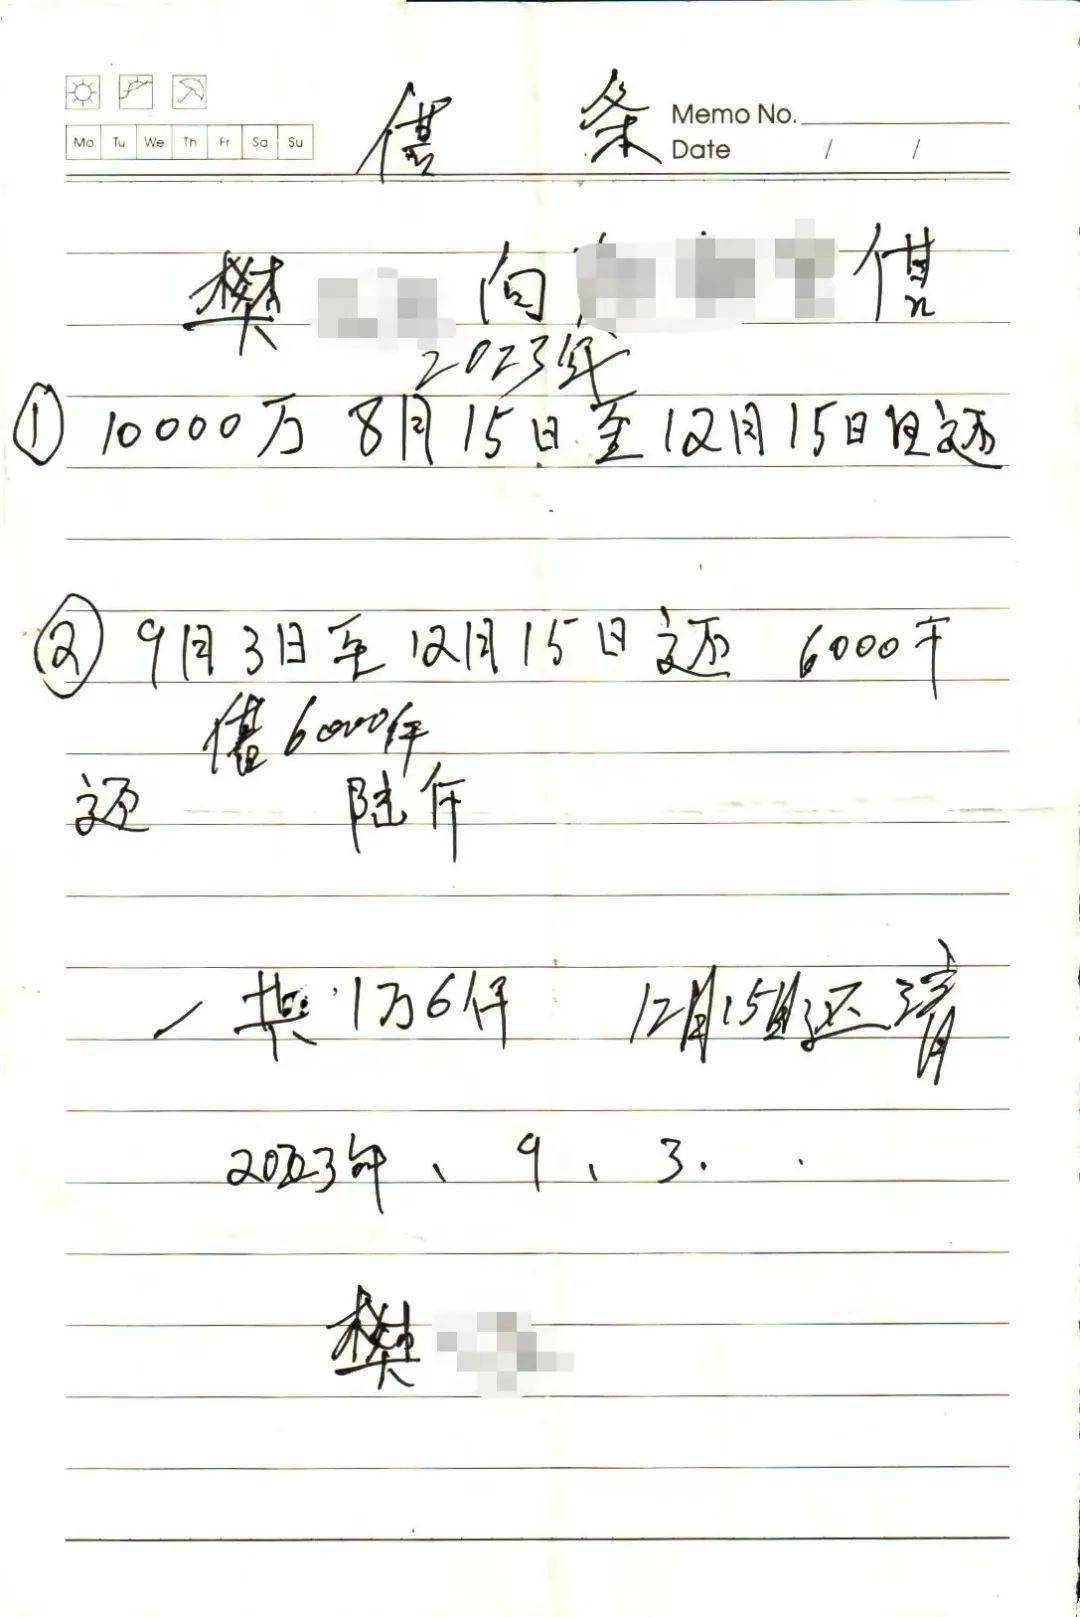 Mo Tu We Th Fr Sa Su
借 条
Memo No.
Date / /
樊 向 借
2023年
① 10000万 8月15日至12月15日还
② 9月3日至12月15日还 6000千
借6000仟
还 陆仟
一共1万6仟 12月15日还清
2023年、9、3.
樊